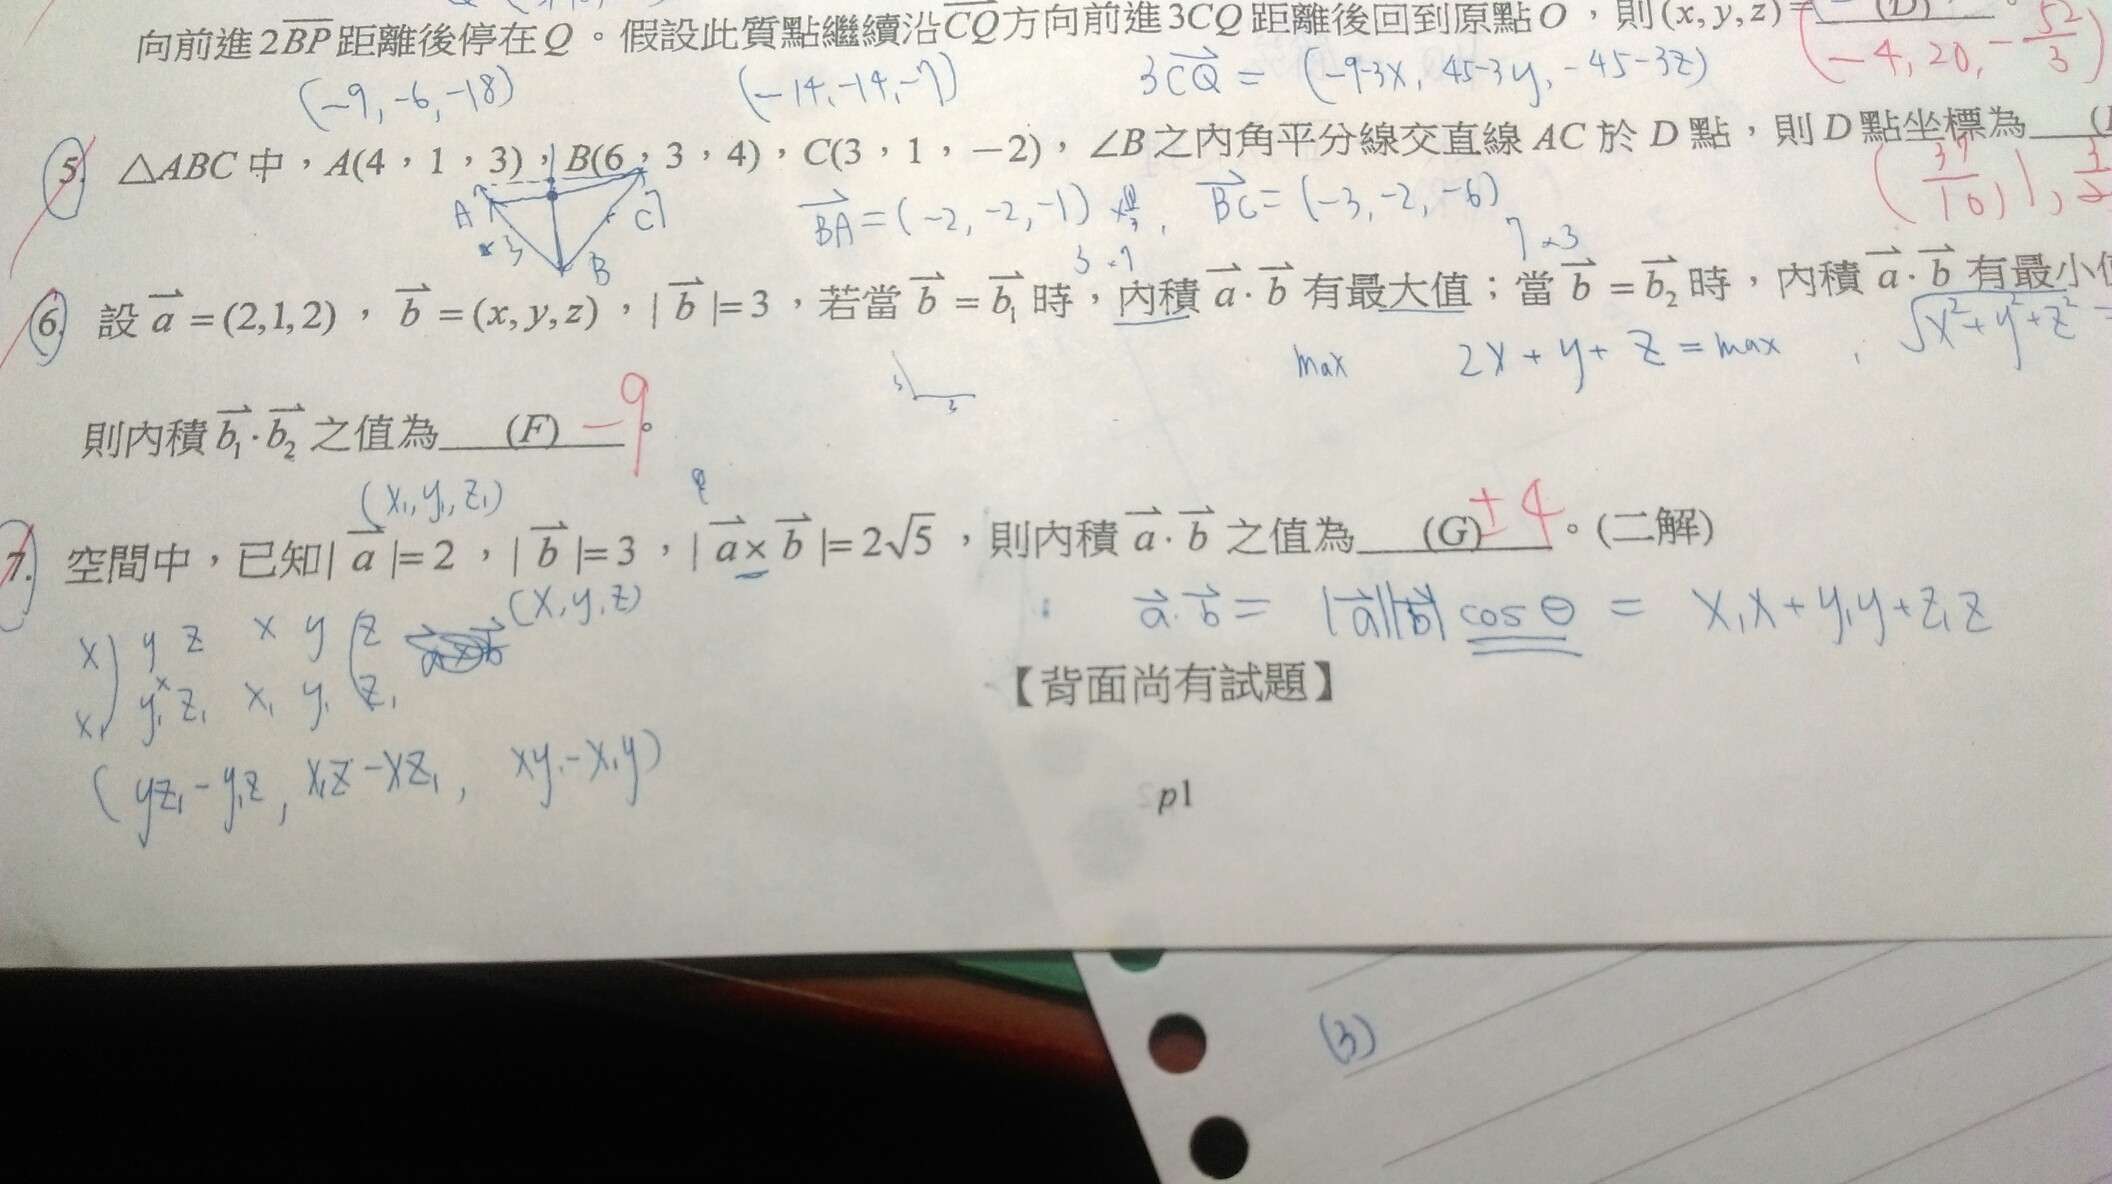 向前進2BP距離後停在Q。假設此質點繼續沿CQ方向前進3CQ距離後回到原點O，則(x,y,z)=(D)
(-4, 20, -52/3)
(-9, -6, -18) (-14, -14, -7) 3CQ = (-9-3x, 45-3y, -45-3z)
5. △ABC中，A(4，1，3)，B(6，3，4)，C(3，1，-2)，∠B之內角平分線交直線AC於D點，則D點坐標為
A 3 B C 7 BA=(-2,-2,-1) BC=(-3,-2,-6) (37/10, 1,
7×3
6. 設a=(2,1,2)，b=(x,y,z)，|b|=3，若當b=b₁時，內積a·b有最大值；當b=b₂時，內積a·b有最小
max 2x+y+z=max , √x²+y²+z² =
則內積b₁·b₂之值為 (F) -9 。
(x₁,y₁,z₁)
7. 空間中，已知|a|=2，|b|=3，|a×b|=2√5，則內積a·b之值為 (G) ±4。(二解)
(x,y,z) a·b = |a||b| cos θ = x₁x+y₁y+z₁z
x y z x y z
x₁ y₁ z₁ x₁ y₁ z₁
【背面尚有試題】
(yz₁-y₁z, x₁z-xz₁, xy₁-x₁y)
p1
(3)